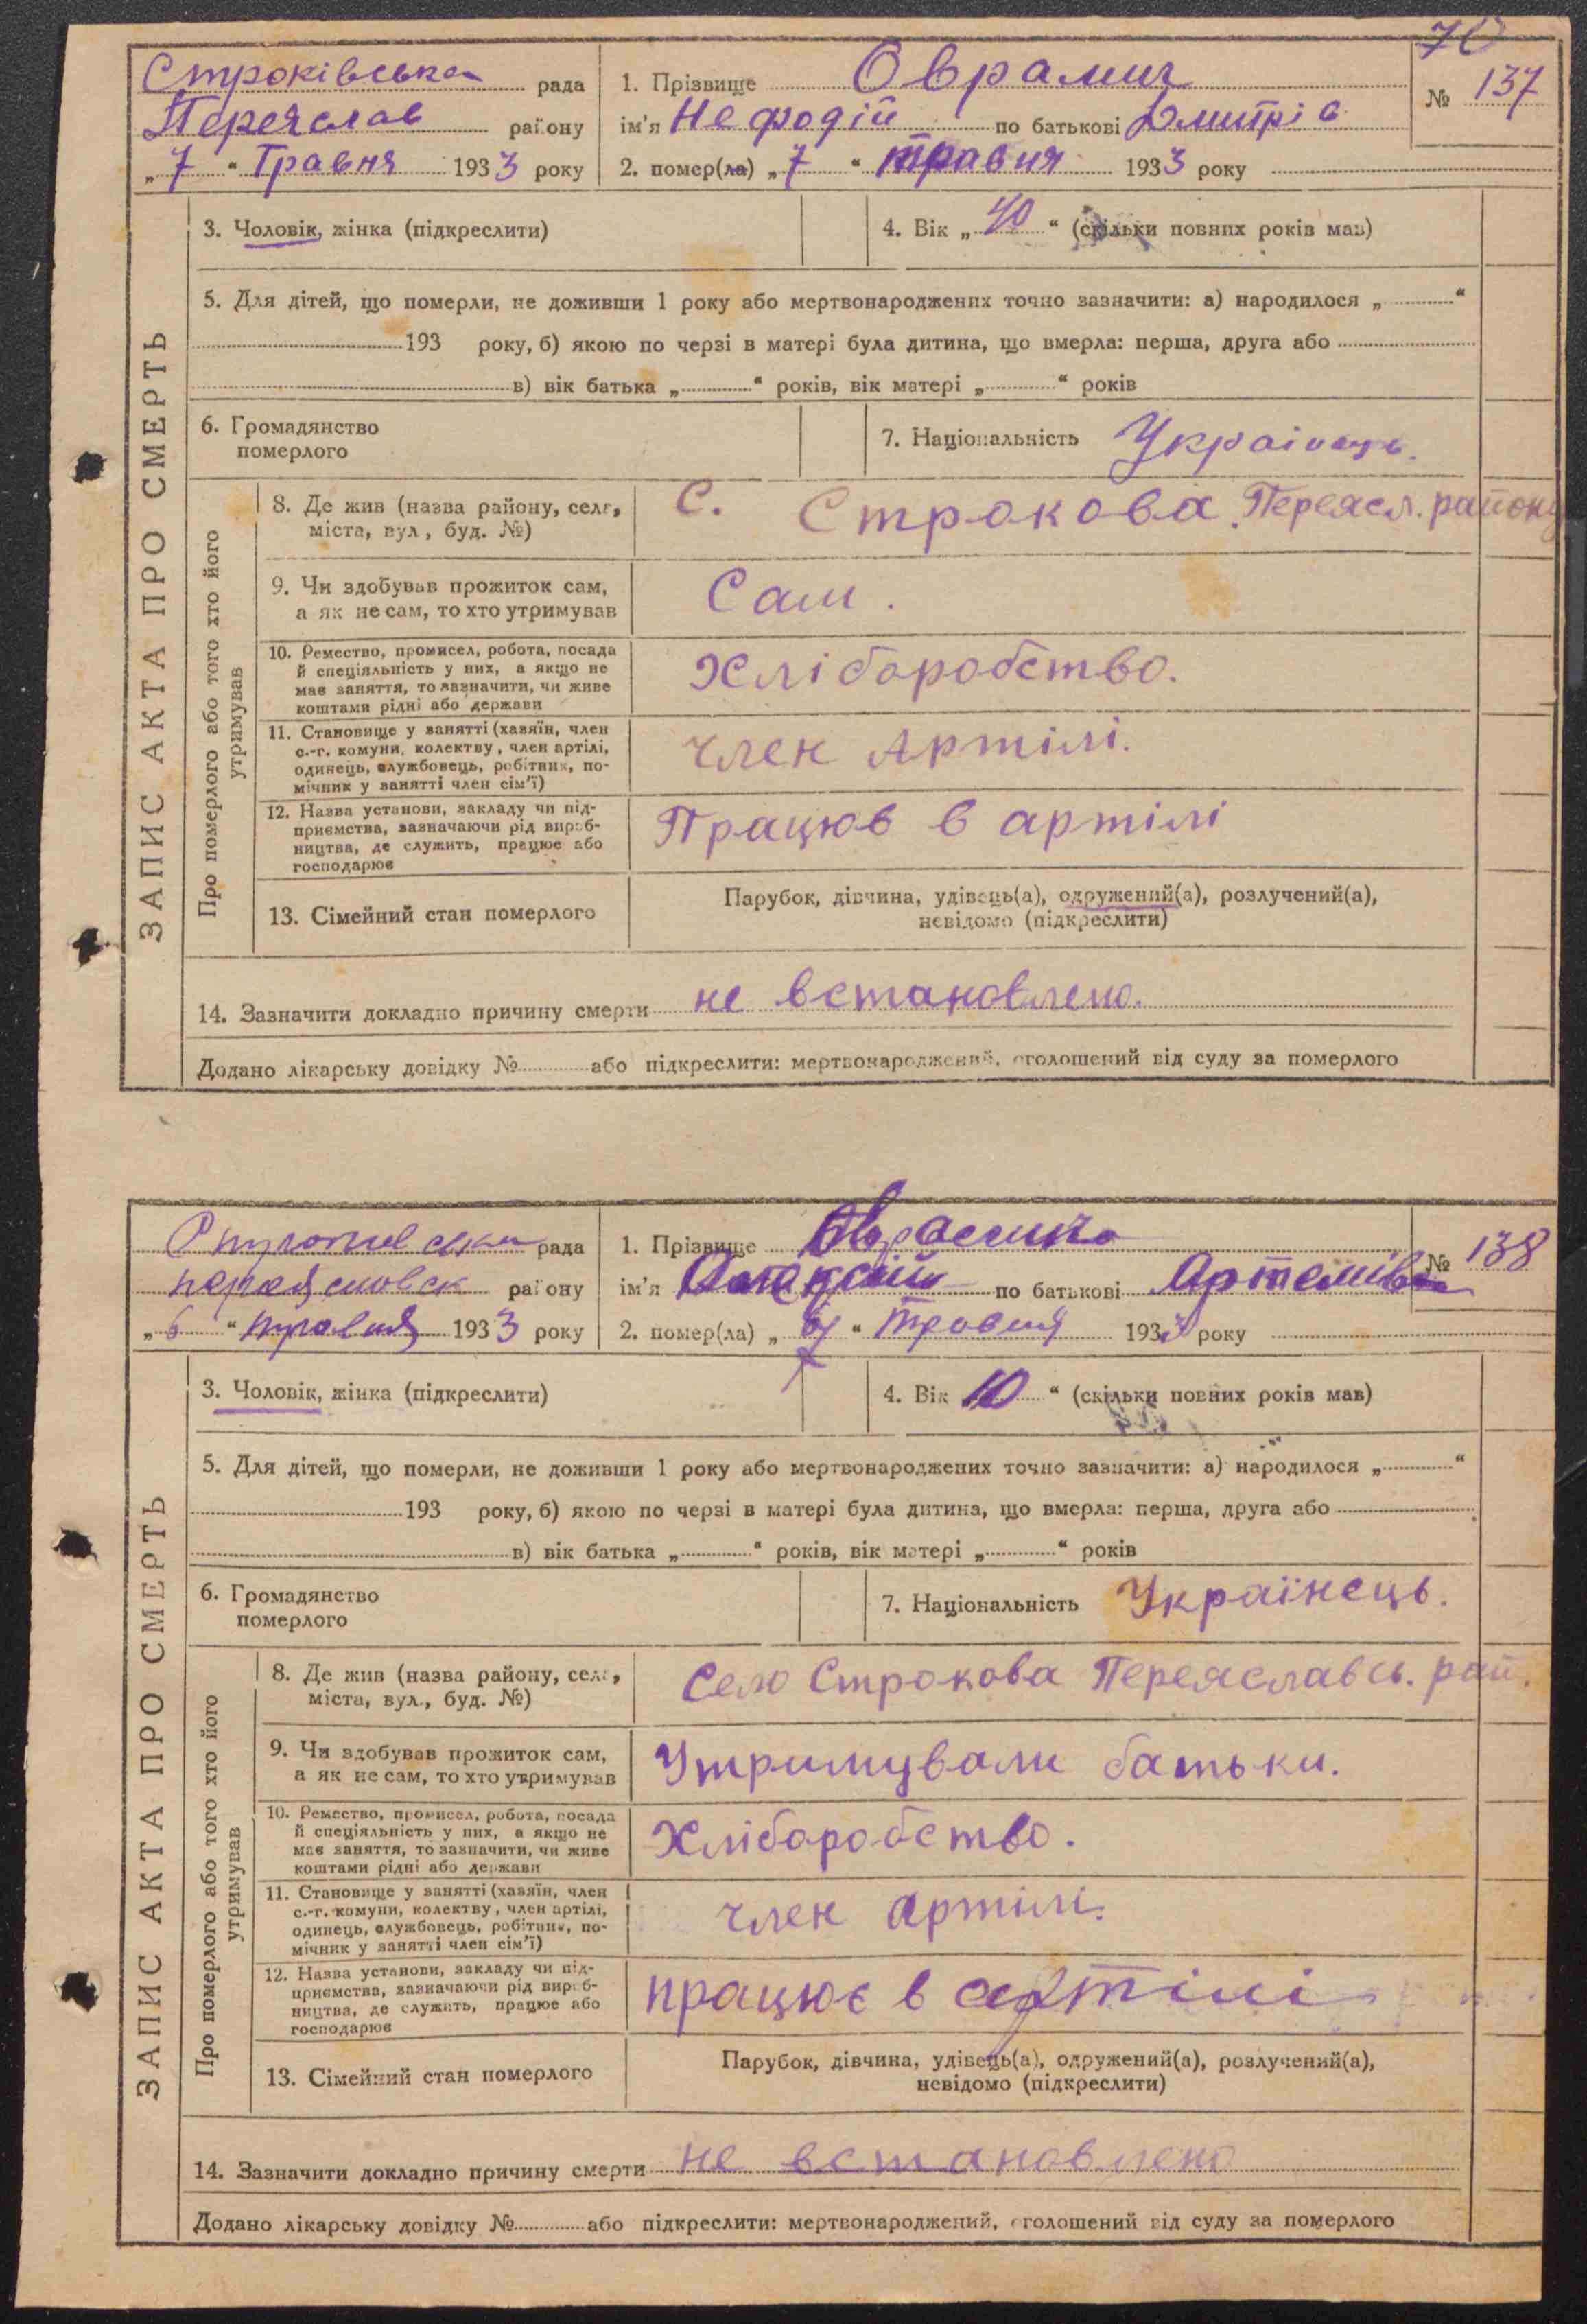 70
Строківська рада
Переяслав району
„7“ Травня 1933 року
1. Прізвище Оврамич
ім'я Нефодій по батькові Дмитрів
2. помер(ла) „7“ травня 1933 року
№ 137
ЗАПИС АКТА ПРО СМЕРТЬ
3. Чоловік, жінка (підкреслити)
4. Вік „40“ (скільки повних років мав)
5. Для дітей, що померли, не доживши 1 року або мертвонароджених точно зазначити: а) народилося „ “
193 року, б) якою по черзі в матері була дитина, що вмерла: перша, друга або
в) вік батька „ “ років, вік матері „ “ років
6. Громадянство
померлого
7. Національність Українець.
Про померлого або того хто його
утримував
8. Де жив (назва району, села,
міста, вул., буд. №)
С. Строкова. Переясл. району
9. Чи здобував прожиток сам,
а як не сам, то хто утримував
Сам.
10. Ремество, промисел, робота, посада
й спеціяльність у них, а якщо не
має заняття, то зазначити, чи живе
коштами рідні або держави
Хліборобство.
11. Становище у занятті (хазяїн, член
с.-г. комуни, колективу, член артілі,
одинець, службовець, робітник, по-
мічник у занятті член сім'ї)
член Артілі.
12. Назва установи, закладу чи під-
приємства, зазначаючи рід вироб-
ництва, де служить, працює або
господарює
Працюв в артілі
13. Сімейний стан померлого
Парубок, дівчина, удівець(а), одружений(а), розлучений(а),
невідомо (підкреслити)
14. Зазначити докладно причину смерти не встановлено.
Додано лікарську довідку № або підкреслити: мертвонароджений, оголошений від суду за померлого
рада
району
„6“ травня 1933 року
1. Прізвище
ім'я Олексій по батькові Артемів
2. помер(ла) „ “ травня 193 року
№ 138
ЗАПИС АКТА ПРО СМЕРТЬ
3. Чоловік, жінка (підкреслити)
4. Вік 10 “ (скільки повних років мав)
5. Для дітей, що померли, не доживши 1 року або мертвонароджених точно зазначити: а) народилося „ “
193 року, б) якою по черзі в матері була дитина, що вмерла: перша, друга або
в) вік батька „ “ років, вік матері „ “ років
6. Громадянство
померлого
7. Національність Українець.
Про померлого або того хто його
утримував
8. Де жив (назва району, села,
міста, вул., буд. №)
Село Строкова Переяславсь. рай.
9. Чи здобував прожиток сам,
а як не сам, то хто утримував
Утримували батьки.
10. Ремество, промисел, робота, посада
й спеціяльність у них, а якщо не
має заняття, то зазначити, чи живе
коштами рідні або держави
Хліборобство.
11. Становище у занятті (хазяїн, член
с.-г. комуни, колективу, член артілі,
одинець, службовець, робітник, по-
мічник у занятті член сім'ї)
член артілі.
12. Назва установи, закладу чи під-
приємства, зазначаючи рід вироб-
ництва, де служить, працює або
господарює
працює в артілі
13. Сімейний стан померлого
Парубок, дівчина, удівець(а), одружений(а), розлучений(а),
невідомо (підкреслити)
14. Зазначити докладно причину смерти не встановлено
Додано лікарську довідку № або підкреслити: мертвонароджений, оголошений від суду за померлого